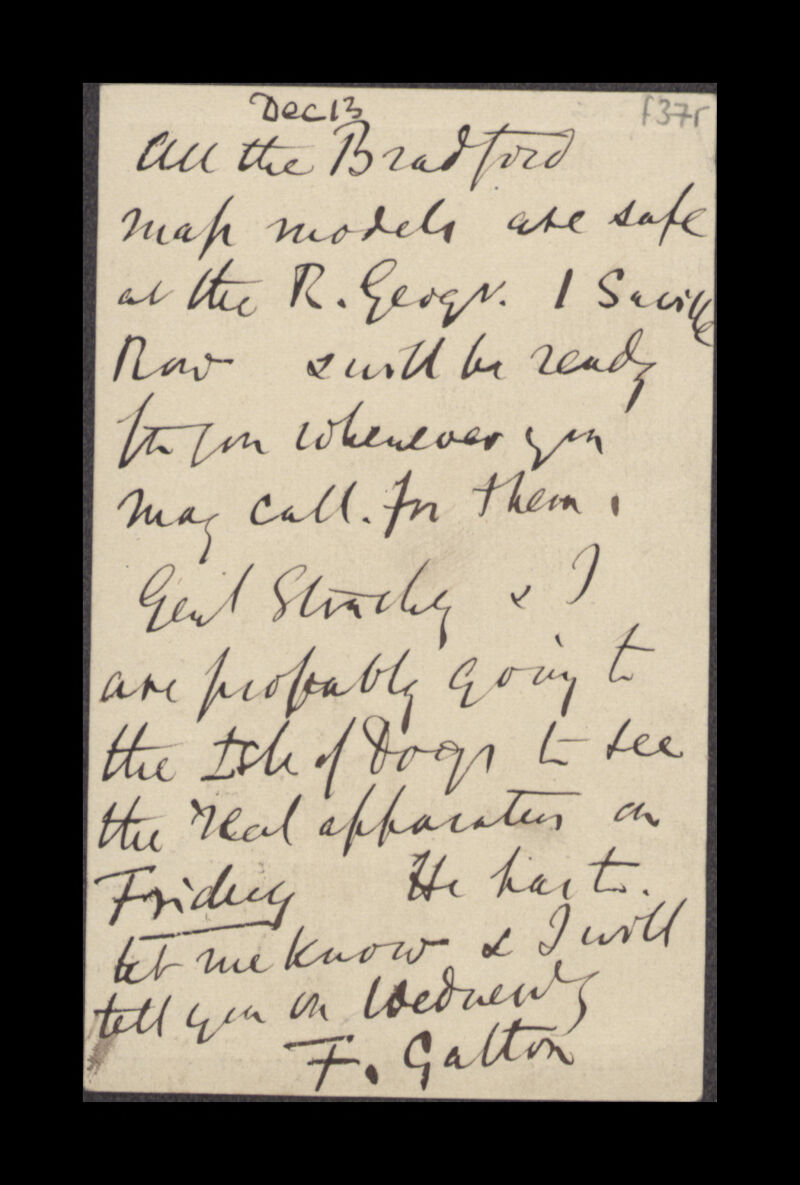 Dec 13
f37r
All the Bradford
map models are safe
at the R. Geogr. 1 Saville
Row & will be ready
for you whenever you
may call. for them.
Genl Strachey & I
are probably going to
the Isle of Dogs to see
the real apparatus on
Friday He has to.
let me know & I will
tell you on Wednesdy
F. Galton